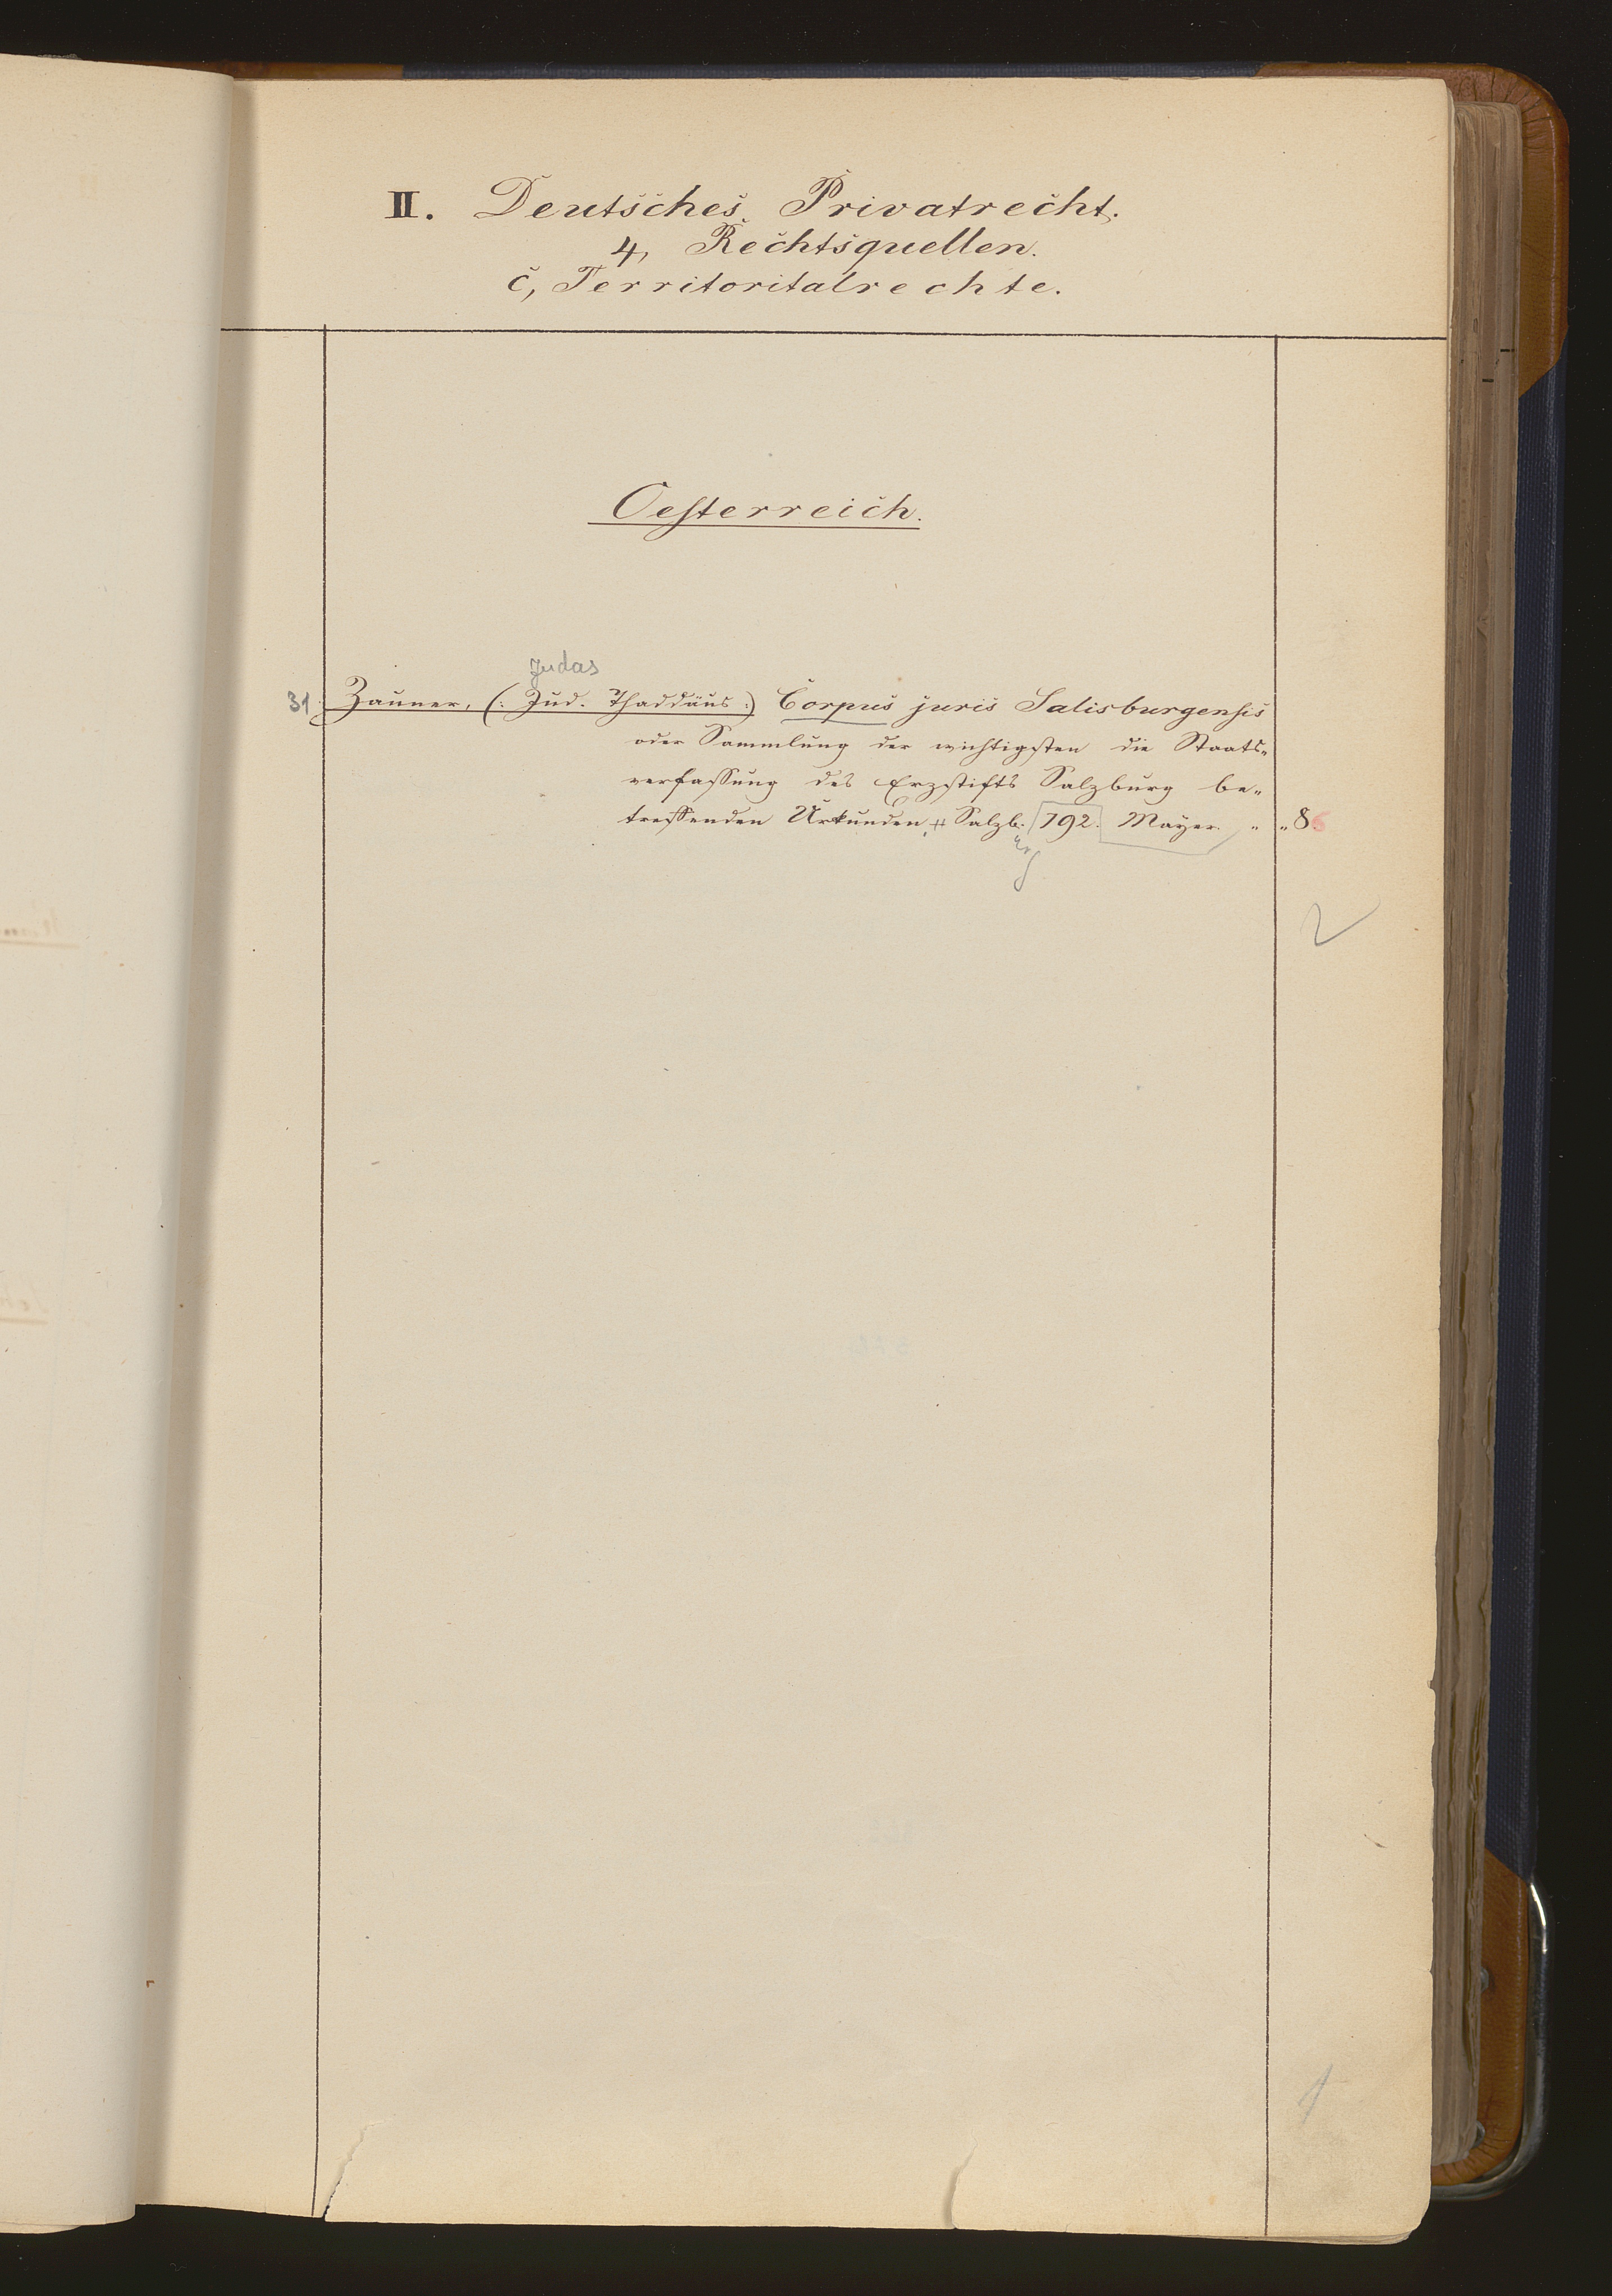 II. Deutsches Privatrecht.
4, Rechtsquellen.
c, Territoritalrechte.
Oesterreich.
Judas
31. Zauner, (: Jud. Thaddäus :) Corpus juris Salisburgensis
oder Sammlung der wichtigsten die Staats-
verfassung des Erzstifts Salzburg be-
treffenden Urkunden, # Salzb. 792. Mayer. " " 8.
urg
2
1